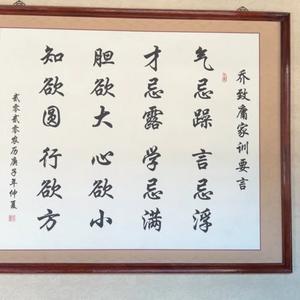 乔致庸家训要言
气忌躁言忌浮
才忌露学忌满
胆欲大心欲小
知欲圆行欲方
贰零贰零农历庚子年仲夏